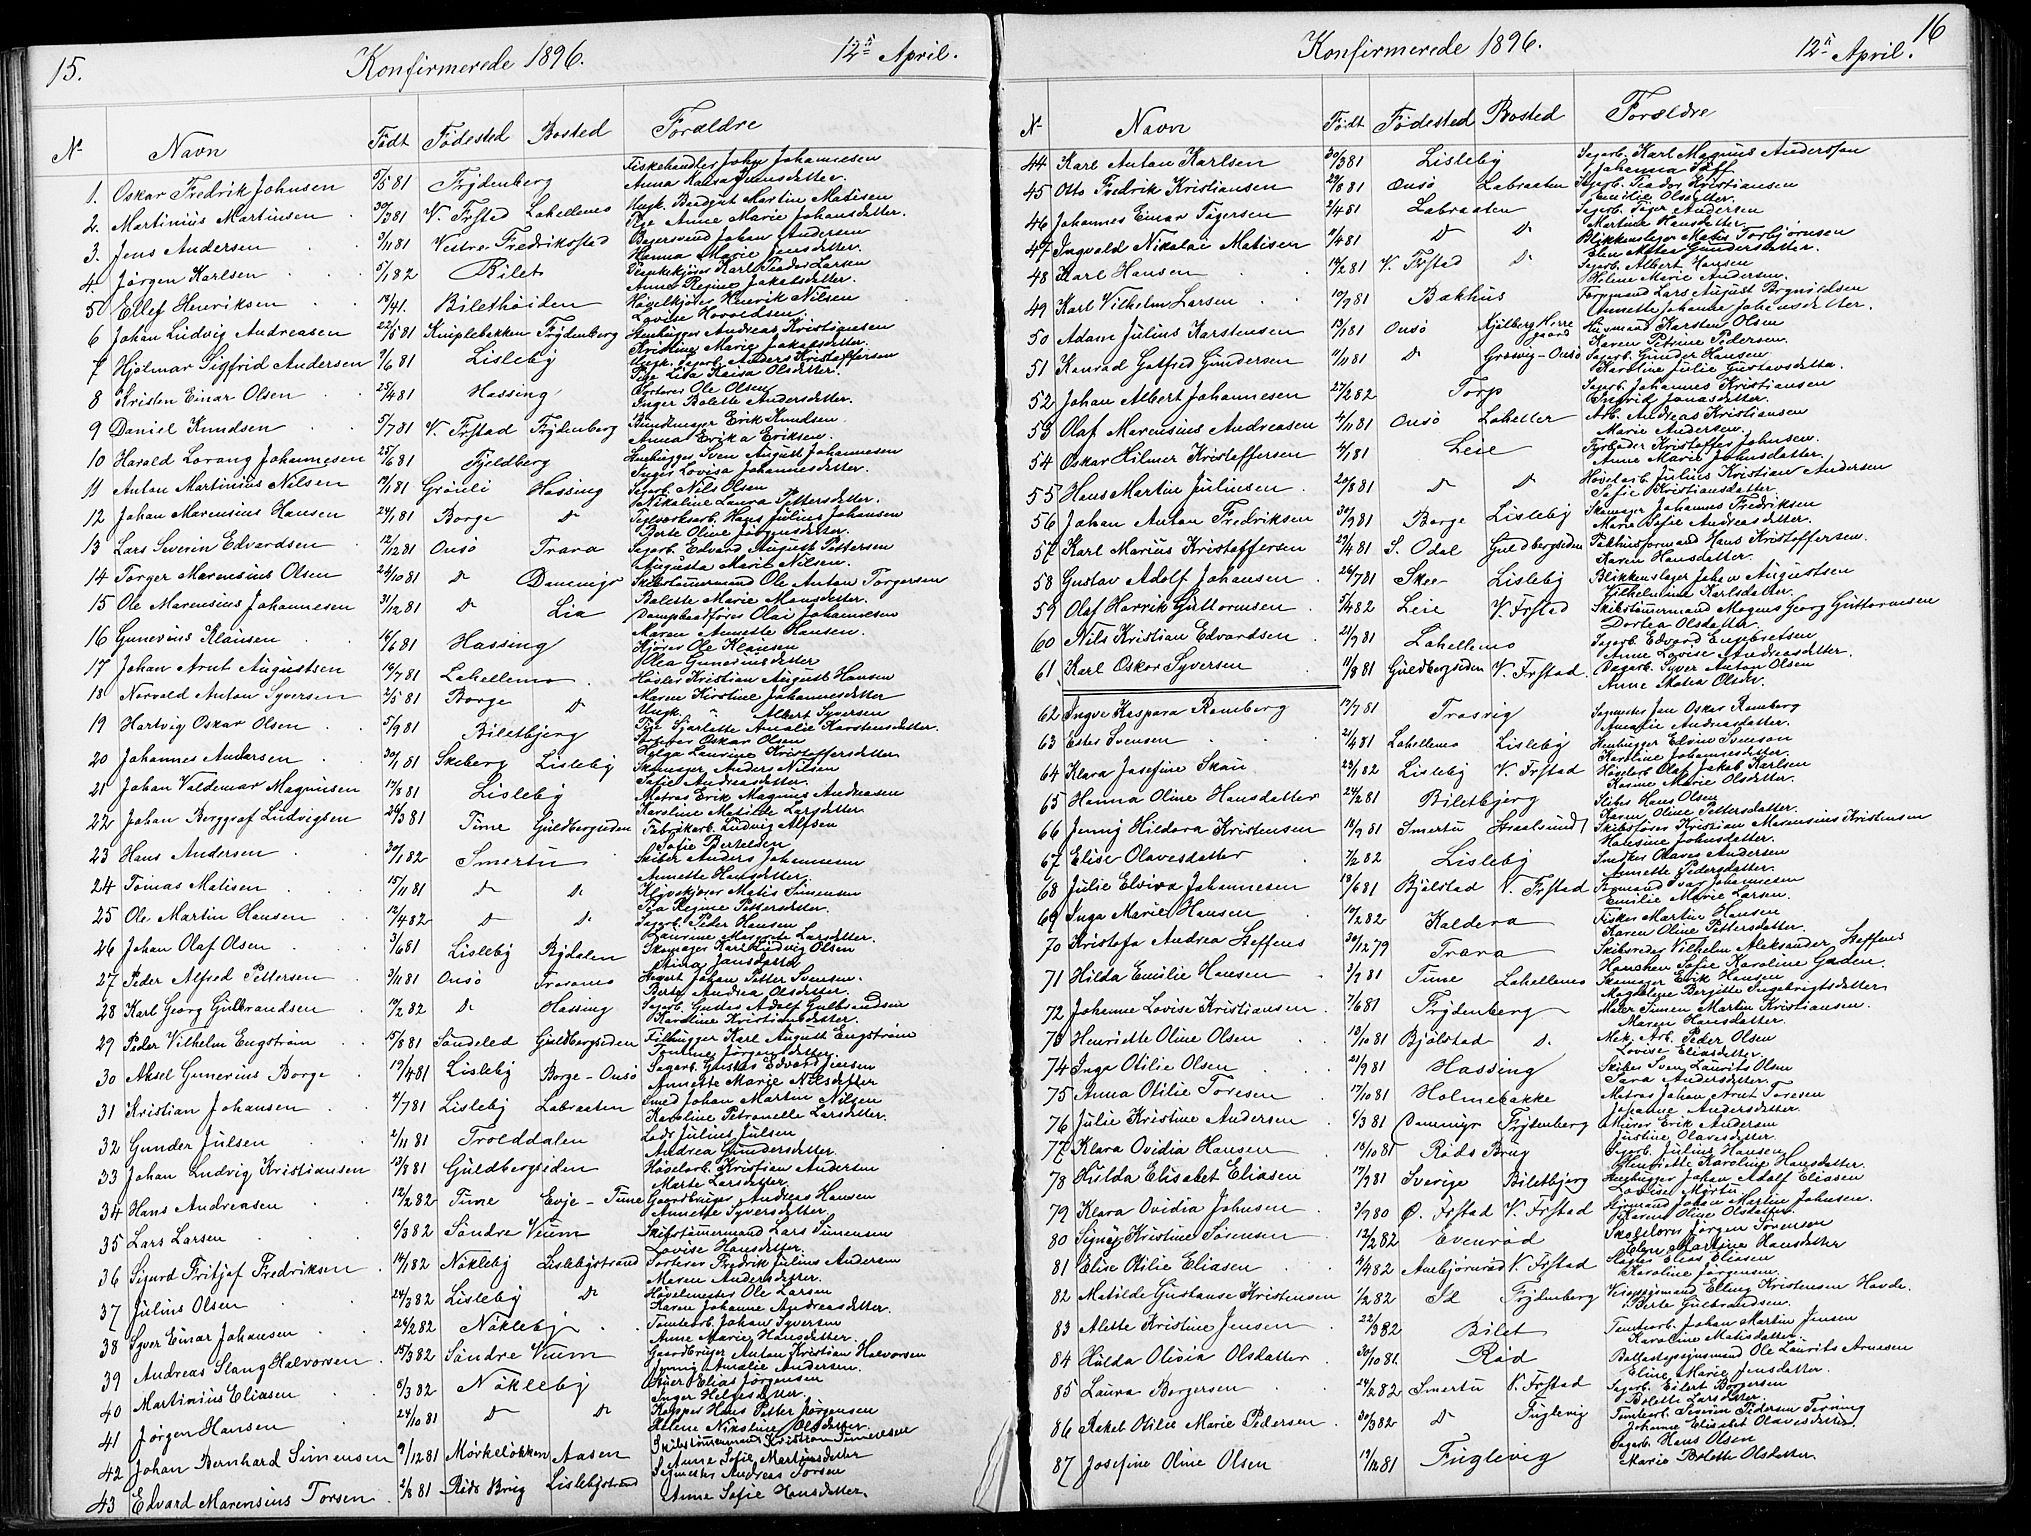 15.
Konfirmerede 1896.
12te April.
No Navn Født Fødested Bosted Forældre
1. Oskar Fredrik Johnsen 5/5 81 Frydenberg Fiskehandler John Johannesen
2. Martinius Martinsen 30/3 81 V. Frstad Lahellemo Ungk. Martin Matisen
Pige Anne Marie Johansdatter.
3. Jens Andersen 3/11 81 Vestre Fredrikstad Johan Andersen
Hanna Marie Jensdatter.
4 Jørgen Karlsen 5/1 82 Bilet Karl Teodor Larsen
Anne Regine Jakobsdatter.
5 Ellef Henriksen Bilethøiden Høvelkjører Henrik Nilsen
Lovise Hovaldsen.
6 Johan Ludvig Andreasen 22/5 81 Kniplebakken Frydenberg Stenhugger Andreas Kristiansen
Kristine Marie Jakobsdatter.
7 Hjalmar Sigfrid Andersen 7/6 81 Lisleby Ungk. Sagarb. Anders Kristoffersen
Pige Lisa Kaisa Olsdatter.
8 Kristen Einar Olsen 25/4 81 Hassing Sorterer Ole Olsen
Inger Bolette Andersdatter.
9 Daniel Knudsen 5/7 81 V. Frstad Frydenberg Bundtmager Erik Knudsen
Anna Erika Eriksen.
10 Harald Lorang Johannesen 25/6 81 Fjeldberg Stenhugger Sven August Johannesen
Inger Lovisa Johannesdatter.
11 Anton Martinius Nilsen 19/1 81 Grønli Hassing Sagarb. Nils Olsen
Nikoline Laura Pettersdatter.
12 Johan Marensius Hansen 24/1 81 Borge do Teglverksarb. Hans Julius Johansen
Berte Oline Jørgensdatter
13 Lars Severin Edvardsen 12/12 81 Onsø Trara Sagarb. Edvard August Pettersen
Augusta Marie Nilsen.
14 Torger Marensius Olsen 24/10 81 do Dammyr Skibstømmermand Ole Anton Torgersen
Bolette Marie Hansdatter.
15 Ole Marensius Johannesen 31/12 81 do Lia Dampbaatfører Olai Johannesen
Maren Annette Hansen.
16 Gunerius Klausen 14/6 81 Hassing Kjører Ole Klausen
Olea Gunerius datter
17 Johan Arnt Augustsen 16/7 81 Lahellemo Høvler Kristian August Hansen
Maren Kirstine Johannesdatter
18 Norvald Anton Syversen 2/5 81 Borge do Ungk. Albert Syversen
Pige Sjarlotte Amalie Karstensdatter.
19 Hartvig Oskar Olsen 5/9 81 Biletbjerg Oskar Olsen
Helga Laurine Kristoffersdatter
20 Johannes Andersen 30/1 81 Skeberg Lisleby Skomager Anders Nilsen
Sofie Andreasdatter
21 Johan Valdemar Magnusen 17/8 81 Lisleby Matros Erik Magnus Andreasen
Karoline Matilde Larsdatter
22 Johan Berggraf Ludvigsen 26/3 81 Tune Guldbergsiden Fabrikarb. Ludvig Alfsen
Sofie Bertelsen
23 Hans Andersen 30/1 82 Smertu Skiber Anders Johannesen
Annette Hansdatter.
24 Tomas Matisen 15/11 81 do do Matis Simensen
Pettersdatter.
25 Ole Martin Hansen 12/4 82 do do Sagarb. Peder Hansen
Laurine Margrete Larsdatter.
26 Johan Olaf Olsen 3/6 81 Lisleby Bydalen Skomager Karl Ludvig Olsen
Jansdatter
27 Peder Alfred Pettersen 3/11 81 Onsø Traramo Johan Petter Svensen.
Berte Andrea Olsdatter.
28 Karl Georg Gulbrandsen 19/2 82 do Hassing Sagarb. Gustav Adolf Gulbrandsen
Karoline Kristiansdatter.
29 Peder Vilhelm Engstrøm 15/8 81 Søndeled Guldbergsiden Filhugger Karl August Engstrøm
Tomine Jørgensdatter.
30 Aksel Gunerius Borge 19/4 81 Lisleby Borge - Onsø Sagarb. Gustav Edvard Jensen
Annette Marie Nilsdatter
31 Kristian Johansen 4/7 81 Lisleby Labraaten Smed Johan Martin Nilsen
Karoline Petronelle Larsdatter.
32 Gunder Julsen 2/11 81 Trolddalen Lods Julius Julsen
Andrea Gundersdatter.
33 Johan Ludvig Kristiansen 13/8 81 Guldbergsiden Høvelarb. Kristian Andersen
Marte Larsdatter.
34 Hans Andreasen 12/2 82 Tune Evje - Tune Gaardbruger Andreas Hansen
Annette Syversdatter.
35 Lars Larsen 6/3 82 Søndre Veum Skibstømmermand Lars Simensen
Lovise Hansdatter.
36 Sigurd Fritjof Fredriksen 14/1 82 Nøkleby Lislebystrand Sorterer Fredrik Julius Andersen
Maren Andersdatter.
37 Julius Olsen 24/3 82 Lisleby do Høvelmester Ole Larsen
Karen Johanne Andreasdatter.
38 Syver Einar Johansen 24/2 82 Nøkleby Tomtearb. Johan Syversen
Anne Marie Hansdatter.
39 Andreas Stang Halvorsen 15/3 82 Søndre Veum Gaardbruger Anton Kristian Halvorsen
Jenny Amalie Andersen.
40 Martinius Eliasen 6/3 82 Nøkleby Elias Jørgensen
Inger Helgesdatter.
41 Jørgen Hansen 24/10 81 do do Hans Petter Jørgensen
Helene Nikoline Olsdatter
42 Johan Bernhard Simensen 9/12 81 Mørkeløkken Aasen Skibstømmermand Kristian Simensen
Anne Sofie Martinsdatter
43 Edvard Marensius Torsen 2/8 81 Røds Brug Lislebystrand Sagmester Andreas Torsen
Anne Sofie Hansdatter.
16
Konfirmerede 1896.
12te April.
No Navn Født Fødested Bosted Forældre
44 Karl Anton Karlsen 30/3 81 Lisleby Sagarb. Karl Magnus Anderssen
Johanna
45 Otto Fredrik Kristiansen 29/8 81 Onsø Labraaten Sagarb. Teodor Kristiansen
Emilie Olsdatter.
46 Johannes Einar Tøgersen 2/4 81 Labraaten Sagarb. Tøger Andersen
Martine Hansdatter
47 Ingvald Nikolai Matisen 11/4 81 do do Blikkenslager Matis Torbjørnsen
Elen Matea Gundersdatter.
48 Karl Hansen 14/2 81 V. Frstad do Sagarb. Albert Hansen
Helene Marie Andersen.
49 Karl Vilhelm Larsen 19/9 81 Bakhus Lars August Brynildsen
Annette Johanne Johansdatter.
50 Adam Julius Karstensen 13/1 81 Onsø Kjølberg Herregaard Husmand Karsten Olsen
Karen Petrine Pedersen.
51 Konrad Gotfred Gundersen 11/11 81 do Græsvig - Onsø Sagarb. Gunder Hansen
Karoline Julie Gustavsdatter.
52 Johan Albert Johannesen 27/2 82 Torp Sagarb. Johannes Kristiansen
Ingrid Jonasdatter.
53 Olaf Marensius Andreasen 4/11 81 Onsø Laheller Arb. Andreas Kristiansen
Marie Andersen.
54 Oskar Hilmer Kristoffersen 4/1 81 Leie Fyrbøder Kristoffer Johnsen.
Anne Marie Johnsdatter.
55 Hans Martin Juliusen 20/8 81 do do Høvelarb. Julius Kristian Andersen
Sofie Kristiansdatter
56 Johan Anton Fredriksen 30/9 81 Borge Lisleby Skomager Johannes Fredriksen
Marie Sofie Andreasdatter.
57 Karl Marius Kristoffersen 23/4 81 S. Odal Guldbergsiden Pakhusformand Hans Kristoffersen.
Karen Hansdatter.
58 Gustav Adolf Johansen 26/7 81 Skee Lisleby Blikkenslager Johan Augustsen
Vilhelmine Karlsdatter.
59 Olaf Henrik Guttormsen 5/4 82 Leie V. Frstad Skibstømmermand Magnus Georg Guttormsen
Dortea Olsdatter
60 Nils Kristian Edvardsen 21/9 81 Lahellemo Sagarb. Edvard Engebretsen
Anne Lovise Andreasdatter.
61 Karl Oskar Syversen 11/8 81 Guldbergsiden V. Frstad. Dagarb. Syver Anton Olsen
Anne Matea Olsdr.
62 Ingve Kaspara Ramberg 17/7 81 Trosvig Sagmester Jan Oskar Ramberg
Amalie Andreasdatter.
63 Ester Svensen 21/4 81 Lahellemo Lisleby Stenhugger Edvin Svenson
Karoline Johannesdatter.
64 Klara Josefine Skau 23/1 82 Lisleby V. Frstad Høvlarb. Olaf Jakob Karlsen
Karine Marie Olsdatter.
65 Hanna Oline Hansdatter 24/2 81 Biletbjerg Skiber Hans Olsen
Karen Oline Pettersdatter.
66 Jenny Hildora Kristensen 18/9 81 Smertu Straalsund Skibsfører Kristian Marensius Kristensen
Halesine Johnsdatter.
67 Elise Olavesdatter 7/2 82 Lisleby Snedker Olaves Andersen
Annette Pedersdatter.
68 Julie Elvira Johannesen 18/6 81 Bjølstad V. Frstad Ivar Johannesen
Emilie Marie Larsen.
69 Inga Marie Hansen 17/2 82 Kaldera Fisker Martin Hansen
Karen Oline Pettersdatter.
70 Kristofa Andrea Steffens 30/12 79 Trara Skibsreder Vilhelm Aleksander Steffens
Hanchen Sofie Karoline Gaden.
71 Hilda Emilie Hansen 3/9 81 Tune Lahellemo Skomager Erik Hansen
Magdalene Bergitte Ingebrigtsdatter
72 Johanne Lovise Kristiansen 7/6 81 Frydenberg Maler Simen Martin Kristiansen.
Maren Hansdatter.
73 Henriette Oline Olsen 13/10 81 Bjølstad do. Mek. Arb. Peder Olsen
Lovise Eliasdatter.
74 Inga Otilie Olsen 21/9 81 Hassing Skiber Sven Laurits Olsen
Sara Andersdatter.
75 Anna Otilie Toresen 17/10 81 Holmebakke Matros Johan Arnt Toresen
Johanne Andersdatter.
76 Julie Kristine Andersen 6/3 81 Dammyr Frydenberg Murer Erik Andersen
Justine Olavesdatter.
77 Klara Ovidia Hansen 13/10 81 Røds Brug Sagarb. Julius Hansen
Henriette Karoline Hansdatter.
78 Hulda Elisabet Eliasen 17/9 81 Sverige Biletbjerg Stenhugger Johan Adolf Eliasen
Lovise
79 Klara Ovidia Johnsen 3/9 80 Ø. Frstad V. Frstad Styrmand Johan Martin Johnsen.
Karen Oline Olsdatter.
80 Signy Kristine Sørensen 12/2 82 Evenrød Jørgen Sørensen
Elen Martine Hansdatter
81 Elise Otilie Eliasen 19/4 82 Aarbjørnrød V. Frstad Slagter Elias Eliasen
Karoline Jørgensen.
82 Matilde Gustava Kristensen 1/2 82 Id Frydenberg Elling Kristensen Havde.
Berte Gulbrandsen.
83 Alette Kristine Jensen 22/3 82 Bilet Tomtearb. Johan Martin Jensen
Karoline Matisdatter.
84 Hulda Olivia Olsdatter 30/10 81. Rød Ole Laurits Arnesen
Eline Marie Jensdatter.
85 Laura Borgersen 24/2 82 Smertu V. Frstad Sagarb. Eilert Borgersen
Bolette Larsdatter.
86 Rakel Otilie Marie Pedersen 30/3 82 do Fuglevig Tomtearb. Severin Pedersen
Johanne Elisabet Olavesdatter.
87 Josefine Oline Olsen 19/12 81 Fuglevig Sagarb. Hans Olsen
Marie Bolette Olsdatter.